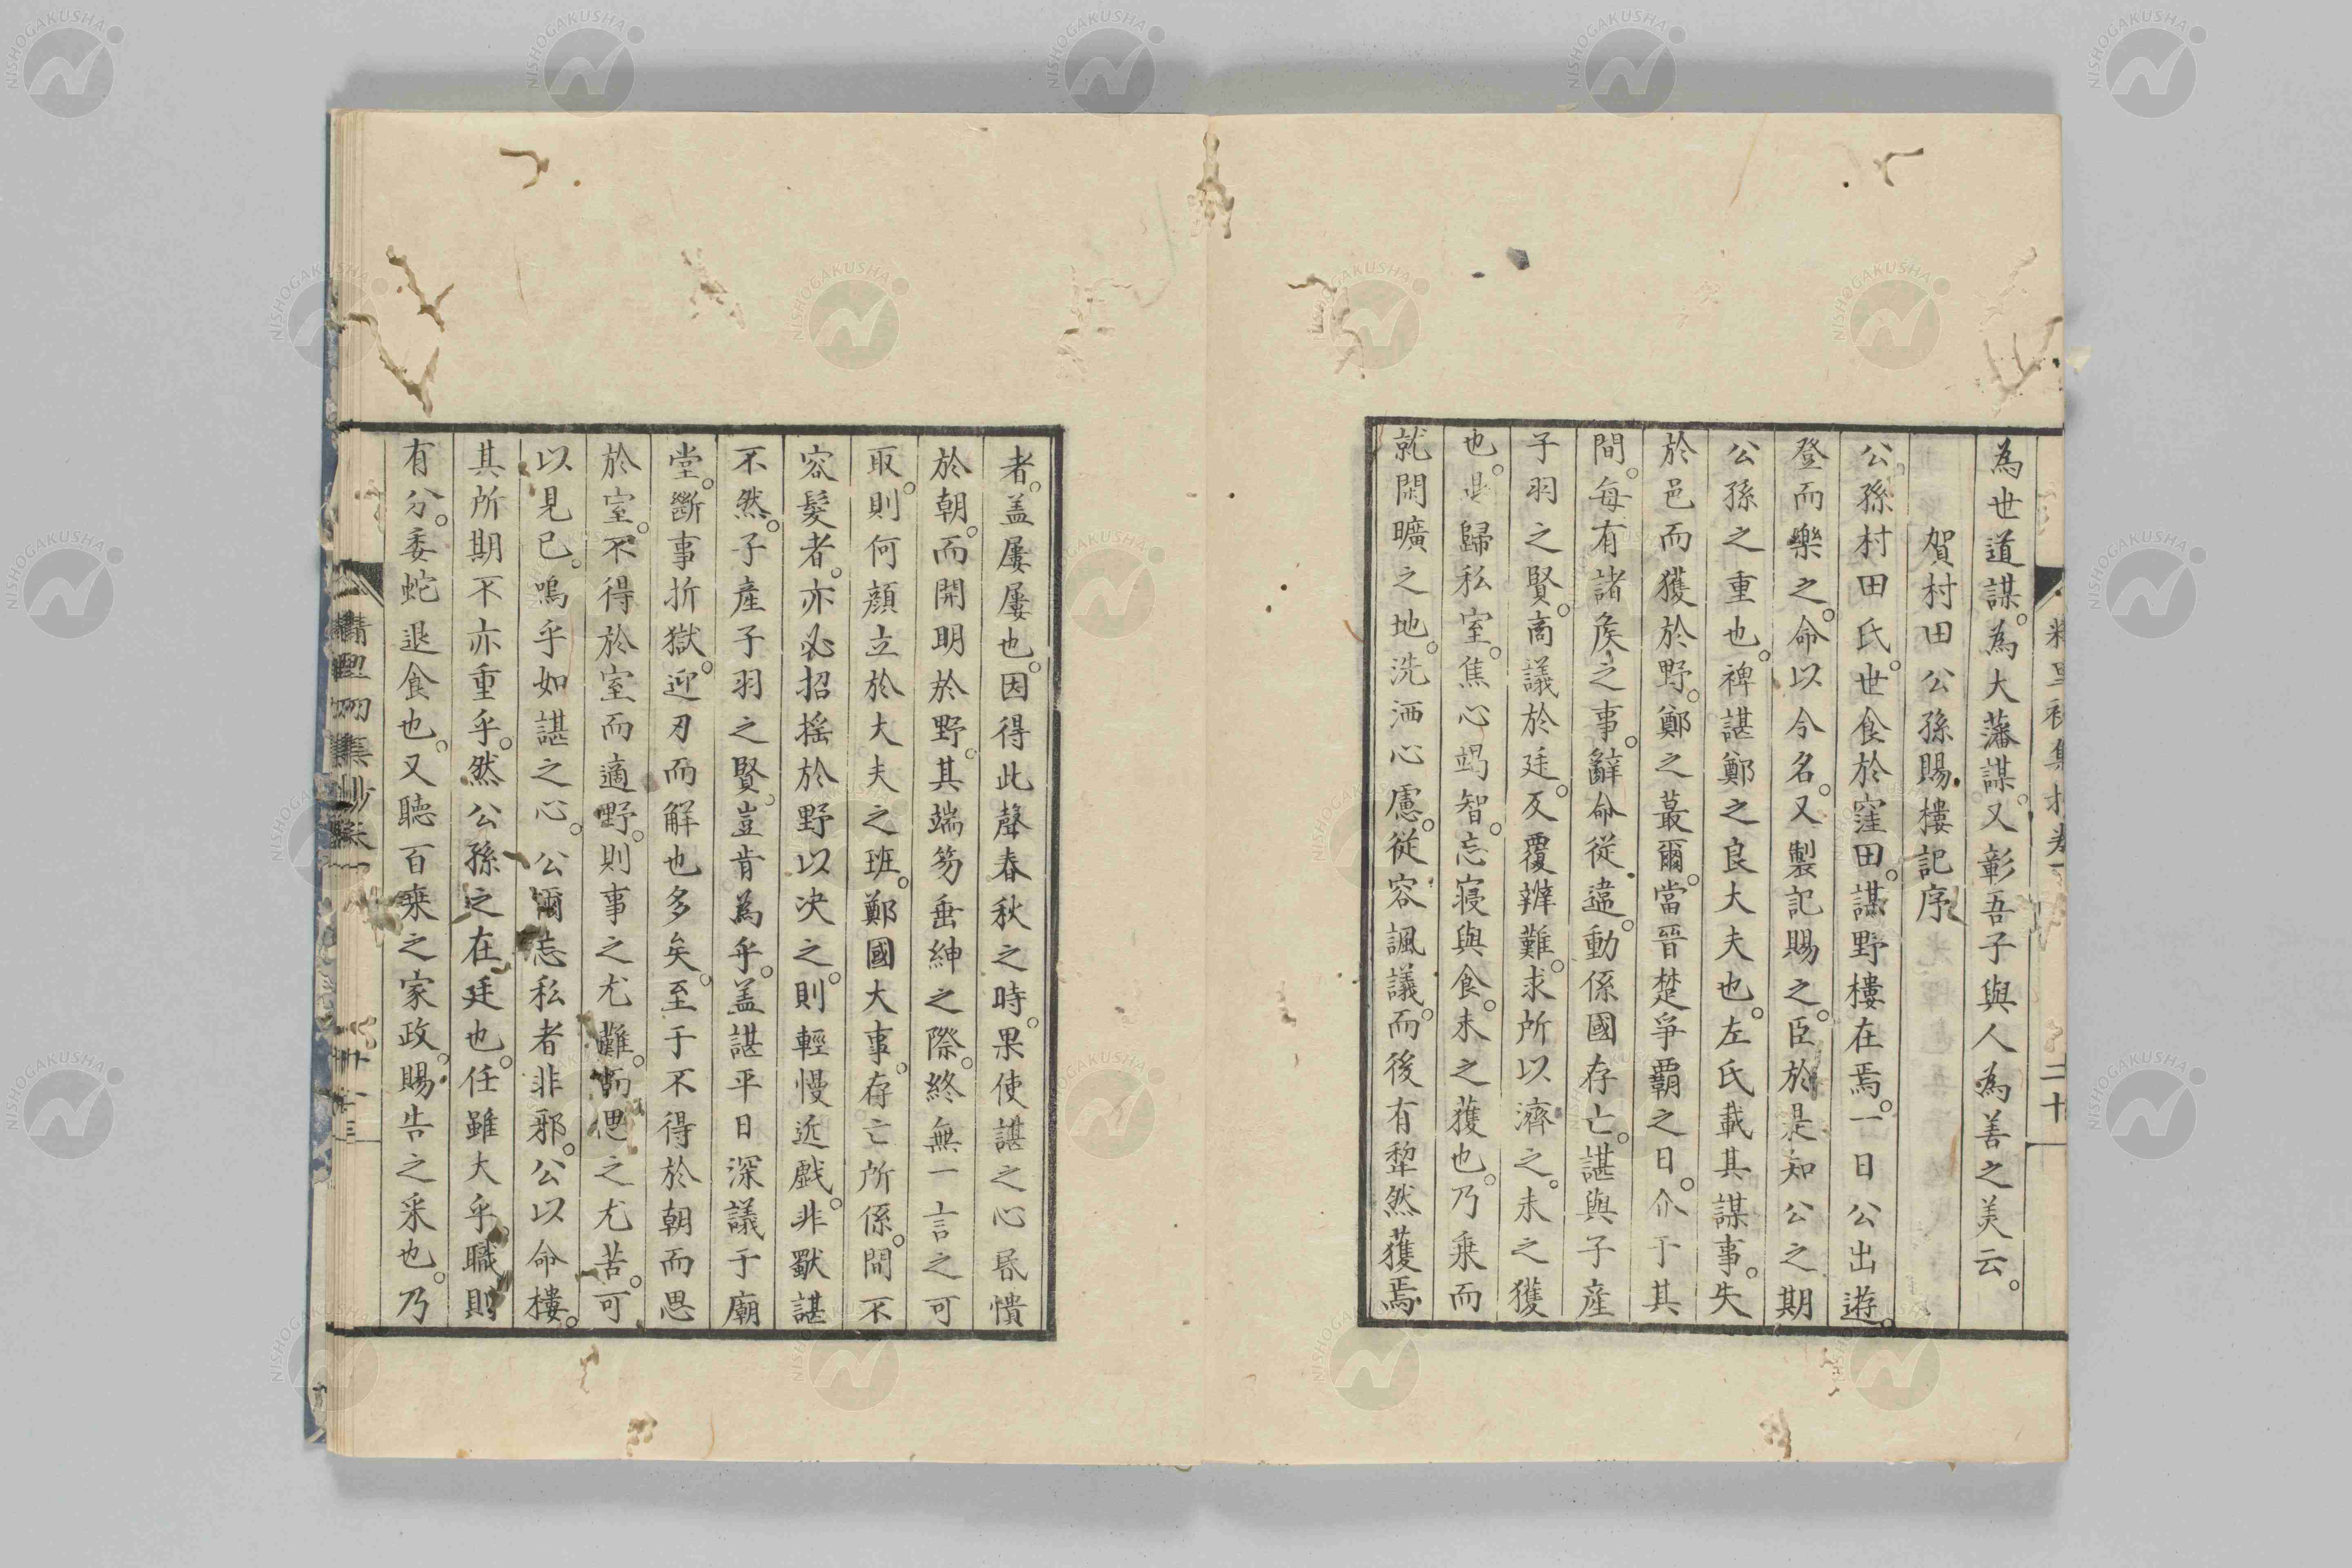 為世道謀。為大藩謀。又彰吾子與人為善之美云。
賀村田公孫賜樓記序
公孫村田氏。世食於窪田。謀野樓在焉。一日公出遊。
登而樂之。命以今名。又製記賜之。臣於是知公之期
公孫之重也。裨諶鄭之良大夫也。左氏載其謀事。失
於邑而獲於野。鄭之蕞爾。當晉楚爭霸之日。介于其
間。每有諸侯之事。辭命從違。動係國存亡。諶與子產
子羽之賢。商議於廷。反覆辨難。求所以濟之。未之獲
也。退歸私室。焦心竭智。忘寢與食。未之獲也。乃乘而
就閑曠之地。洗洒心慮。從容諷議。而後有犂然獲焉
者。盖屢屢也。因得此聲春秋之時。果使諶之心昏憒
於朝。而開明於野。其端笏垂紳之際。終無一言之可
取。則何顏立於大夫之班。鄭國大事。存亡所係。間不
容髮者。亦必招搖於野以决之。則輕慢近戲。非獸諶
不然。子產子羽之賢。豈肯為乎。盖諶平日深議于廟
堂。斷事折獄。迎刃而解也多矣。至于不得於朝而思
於室。不得於室而適野。則事之尤難。而思之尤苦。可
以見已。嗚乎如諶之心。公爾忘私者非邪。公以命樓。
其所期不亦重乎。然公孫之在廷也。任雖大乎。職則
有分。委蛇退食也。又聽百乘之家政。賜告之采也。乃
NISHOGAKUSHA